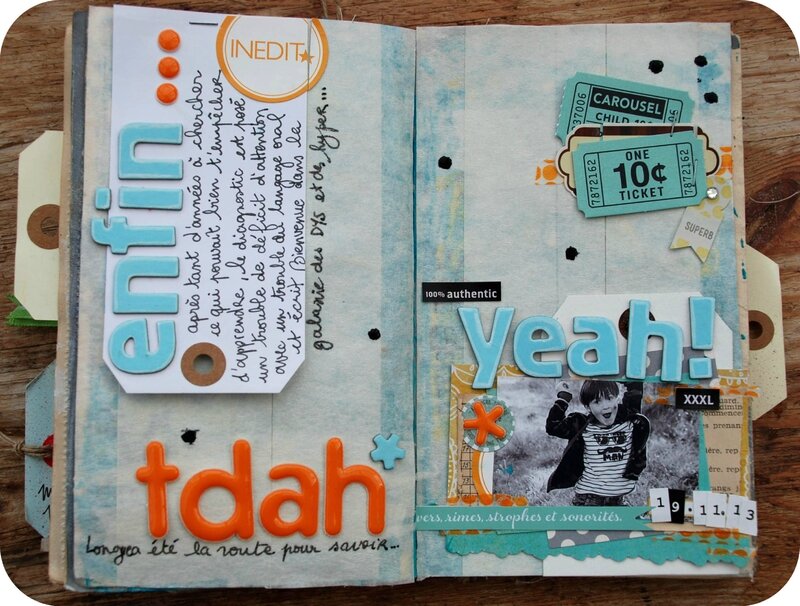 enfin...
INEDIT
après tant d'années à chercher
ce qui pouvait bien t'empêcher
d'apprendre, le diagnostic est posé
un trouble de déficit d'attention
avec un trouble du langage oral
et écrit. Bienvenue dans la
galaxie des DYS et des hyper...
tdah
Longue a été la route pour savoir...
37006
CAROUSEL
CHILD
7872162
ONE
10¢
TICKET
7872162
SUPERB
100% authentic
yeah!
XXXL
vers, rimes, strophes et sonorités.
19.11.13